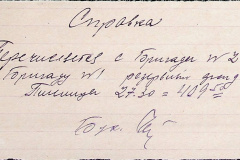 Справка
Перечисляется с бригады № 2
Бригаду №1 резервный фонд
Пшеницы 27.30 = 409 50
Бух.